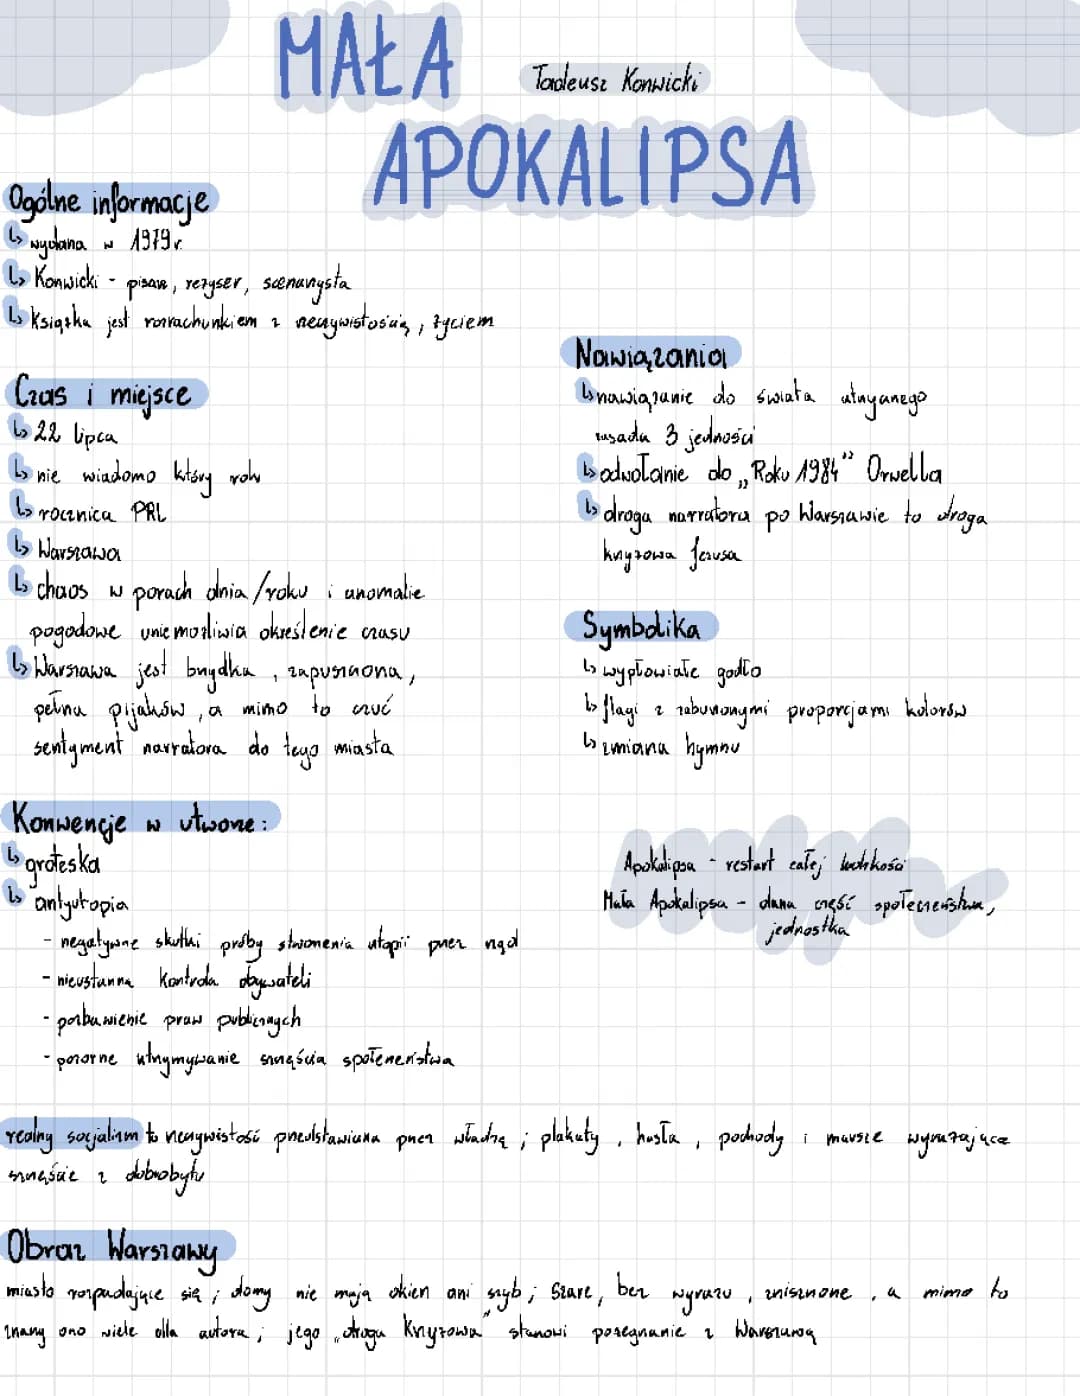 MAŁA
Tadeusz Konwicki
APOKALIPSA
Ogólne informacje
↳ wydana w 1979 r.
↳ Konwicki - pisarz, reżyser, scenarzysta
↳ Książka jest rozrachunkiem z rzeczywistością, życiem
Czas i miejsce
↳ 22 lipca
↳ nie wiadomo który rok
↳ rocznica PRL
↳ Warszawa
↳ chaos w porach dnia/roku i anomalie
pogodowe uniemożliwia określenie czasu
↳ Warszawa jest brzydka, zapuszczona,
pełna pijaków, a mimo to czuć
sentyment narratora do tego miasta
Konwencje w utworze:
↳ groteska
↳ antyutopia
- negatywne skutki próby stworzenia utopii przez rząd
- nieustanna kontrola obywateli
- pozbawienie praw publicznych
- pozorne utrzymywanie szczęścia społeczeństwa
Nawiązania
↳ nawiązanie do świata
zasada 3 jedności
↳ odwołanie do „Roku 1984" Orwella
↳ droga narratora po Warszawie to droga
krzyżowa Jezusa
Symbolika
↳ wypłowiałe godło
↳ flagi z zaburzonymi proporcjami kolorów
↳ zmiana hymnu
Apokalipsa - restart całej ludzkości
Mała Apokalipsa - dana część społeczeństwa,
jednostka
realny socjalizm to rzeczywistość przedstawiana przez władzę; plakaty, hasła, pochody i marsze wyrażające
szczęście z dobrobytu
Obraz Warszawy
miasto rozpadające się; domy nie mają okien ani szyb; szare, bez wyrazu, zniszczone, a mimo to
znany ono wiele dla autora; jego „droga Krzyżowa" stanowi pożegnanie z Warszawą